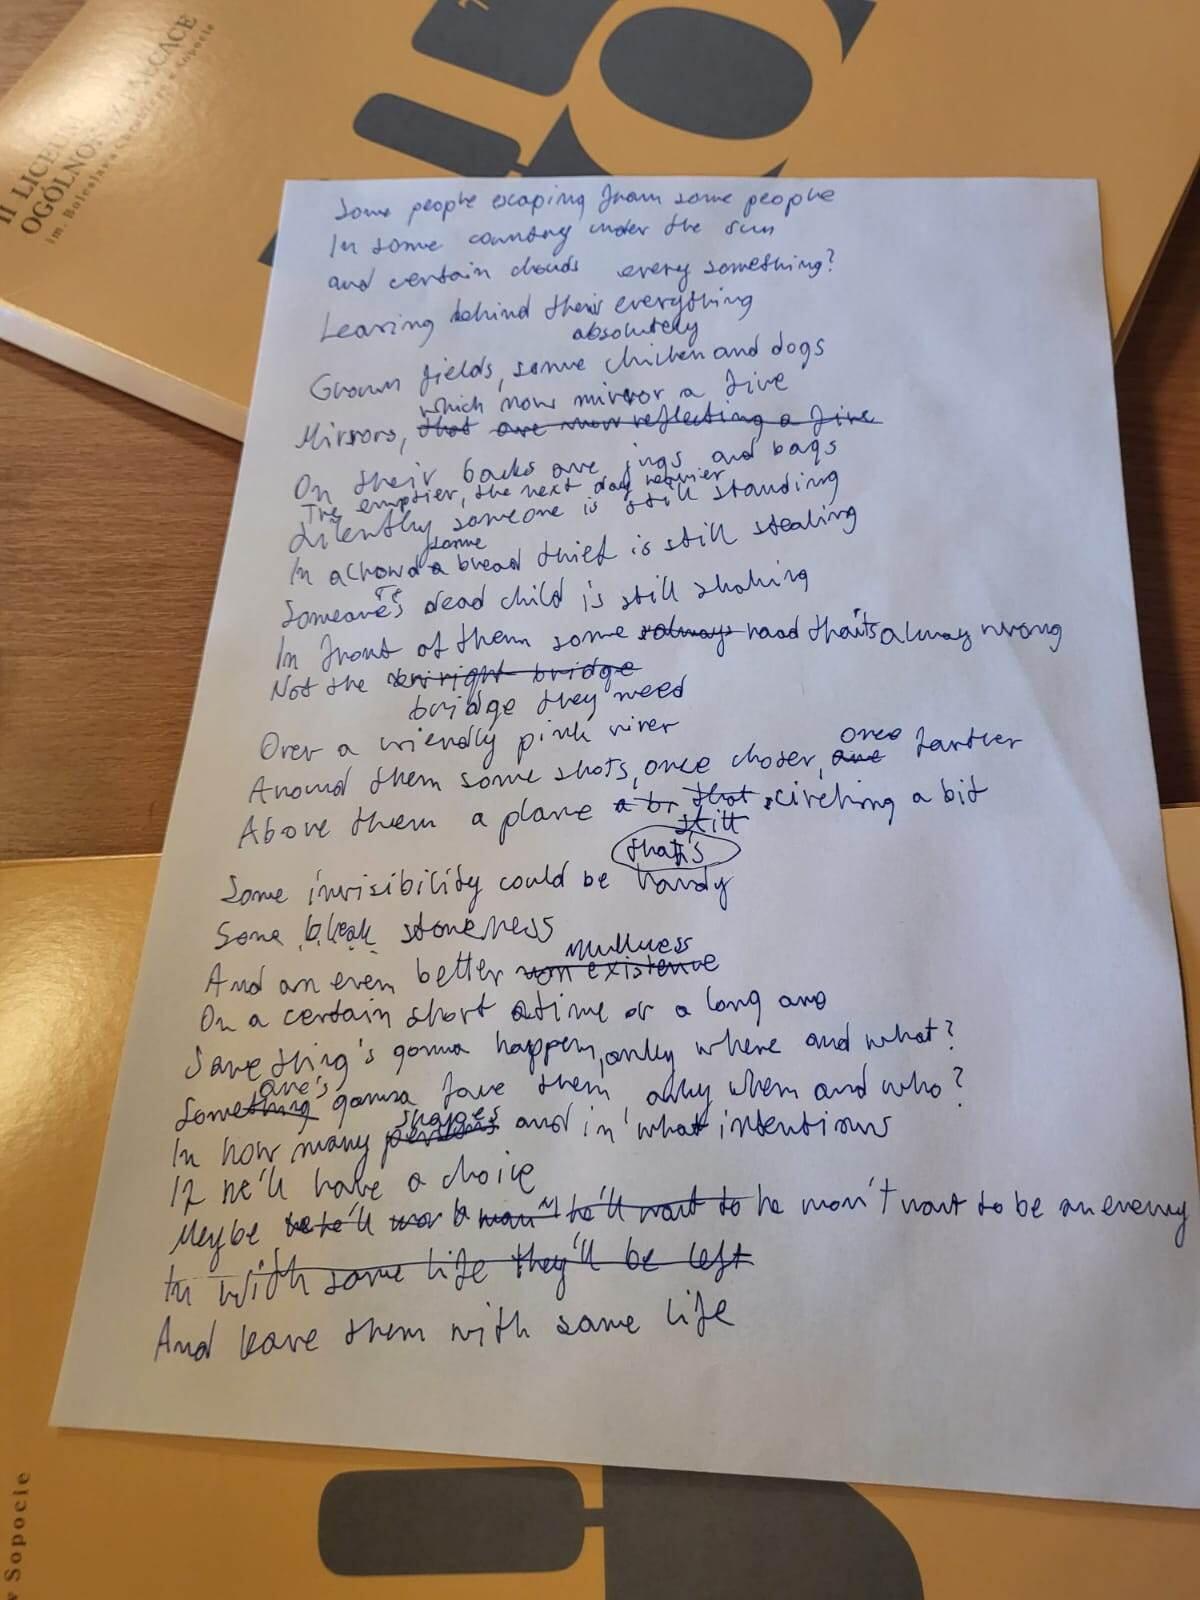 II LICEUM
OGÓLNOKSZTAŁCĄCE
im. Bolesława Chrobrego w Sopocie
Some people escaping from some people
In some country under the sun
and certain clouds every something?
Leaving behind their everything
absolutely
Grown fields, some chicken and dogs
which now mirror a fire
Mirrors, that are now reflecting a fire
On their backs are jugs and bags
The emptier, the next day heavier
Silently someone is still standing
some
In a crowd a bread thief is still stealing
Someone's dead child is still shaking
In front of them some always road that's alway wrong
Not the right bridge
bridge they need
Over a friendly pink river
once
Around them some shots, once closer, farther
Above them a plane a that circling a bit
still
that's
Some invisibility could be handy
Some bleak stoneness
nullness
And an even better non existence
On a certain short time or a long one
Something's gonna happen, only where and what?
one's
Something gonna face them only when and who?
shapes
In how many persons and in what intentions
If he'll have a choice
Maybe he'll want to he won't want to be an enemy
In with some life they'll be left
And leave them with some life
w Sopocie